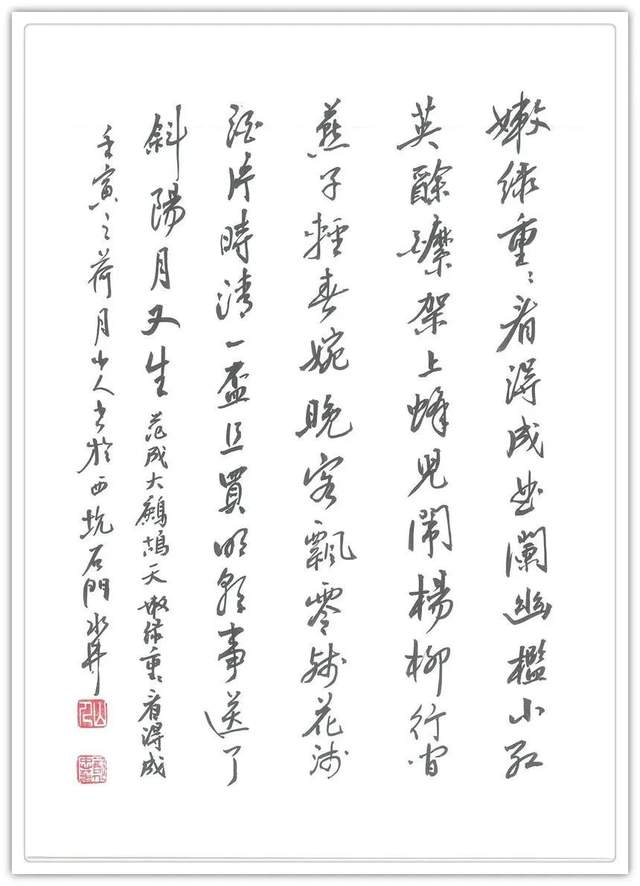 嫩綠重〻看得成曲闌幽檻小紅
英酴醾架上蜂兒鬧楊柳行間
燕子輕春婉晚客飄零殘花殘
酒片時清一盃且買明朝事送了
斜陽月又生 范成大鷓鴣天嫩綠重〻看得成
壬寅之荷月山人書於西坑石門水